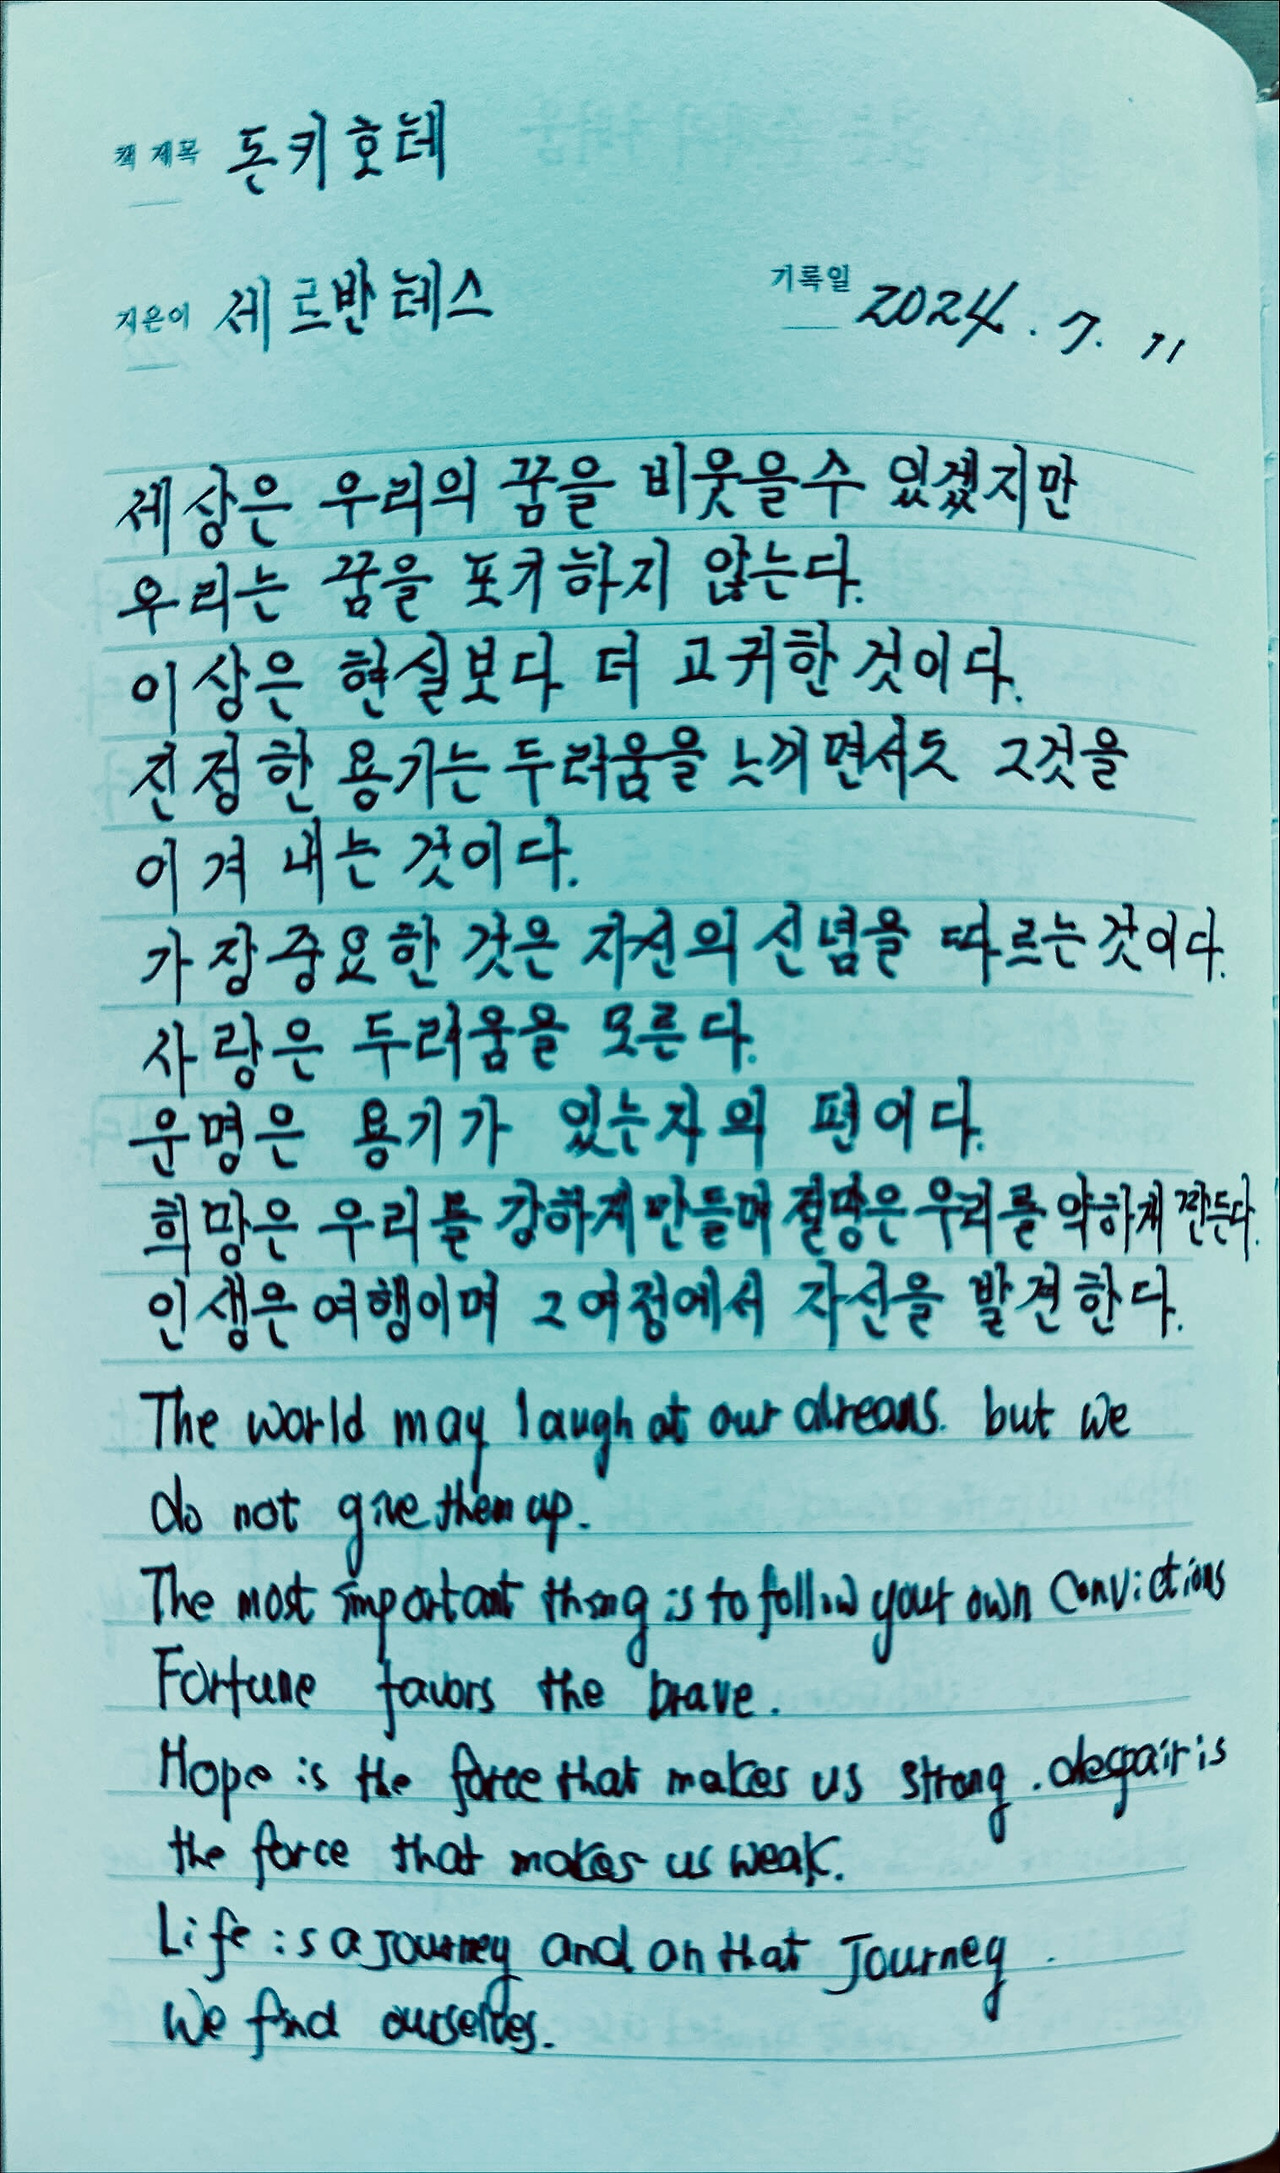 책 제목 돈키호테
지은이 세르반테스 기록일 2024. 7. 11
세상은 우리의 꿈을 비웃을수 있겠지만
우리는 꿈을 포기하지 않는다.
이상은 현실보다 더 고귀한 것이다.
진정한 용기는 두려움을 느끼면서도 그것을
이겨 내는 것이다.
가장중요한 것은 자신의 신념을 따르는것이다.
사랑은 두려움을 모른다.
운명은 용기가 있는자의 편이다.
희망은 우리를 강하게만들며 절망은우리를 약하게 만든다.
인생은여행이며 그여정에서 자신을 발견한다.
The world may laugh at our dreams. but we
do not give them up.
The most important thing is to follow your own convictions
Fortune favors the brave.
Hope is the force that makes us strong. despair is
the force that makes us weak.
Life is a Journey and on that Journey.
We find ourselves.